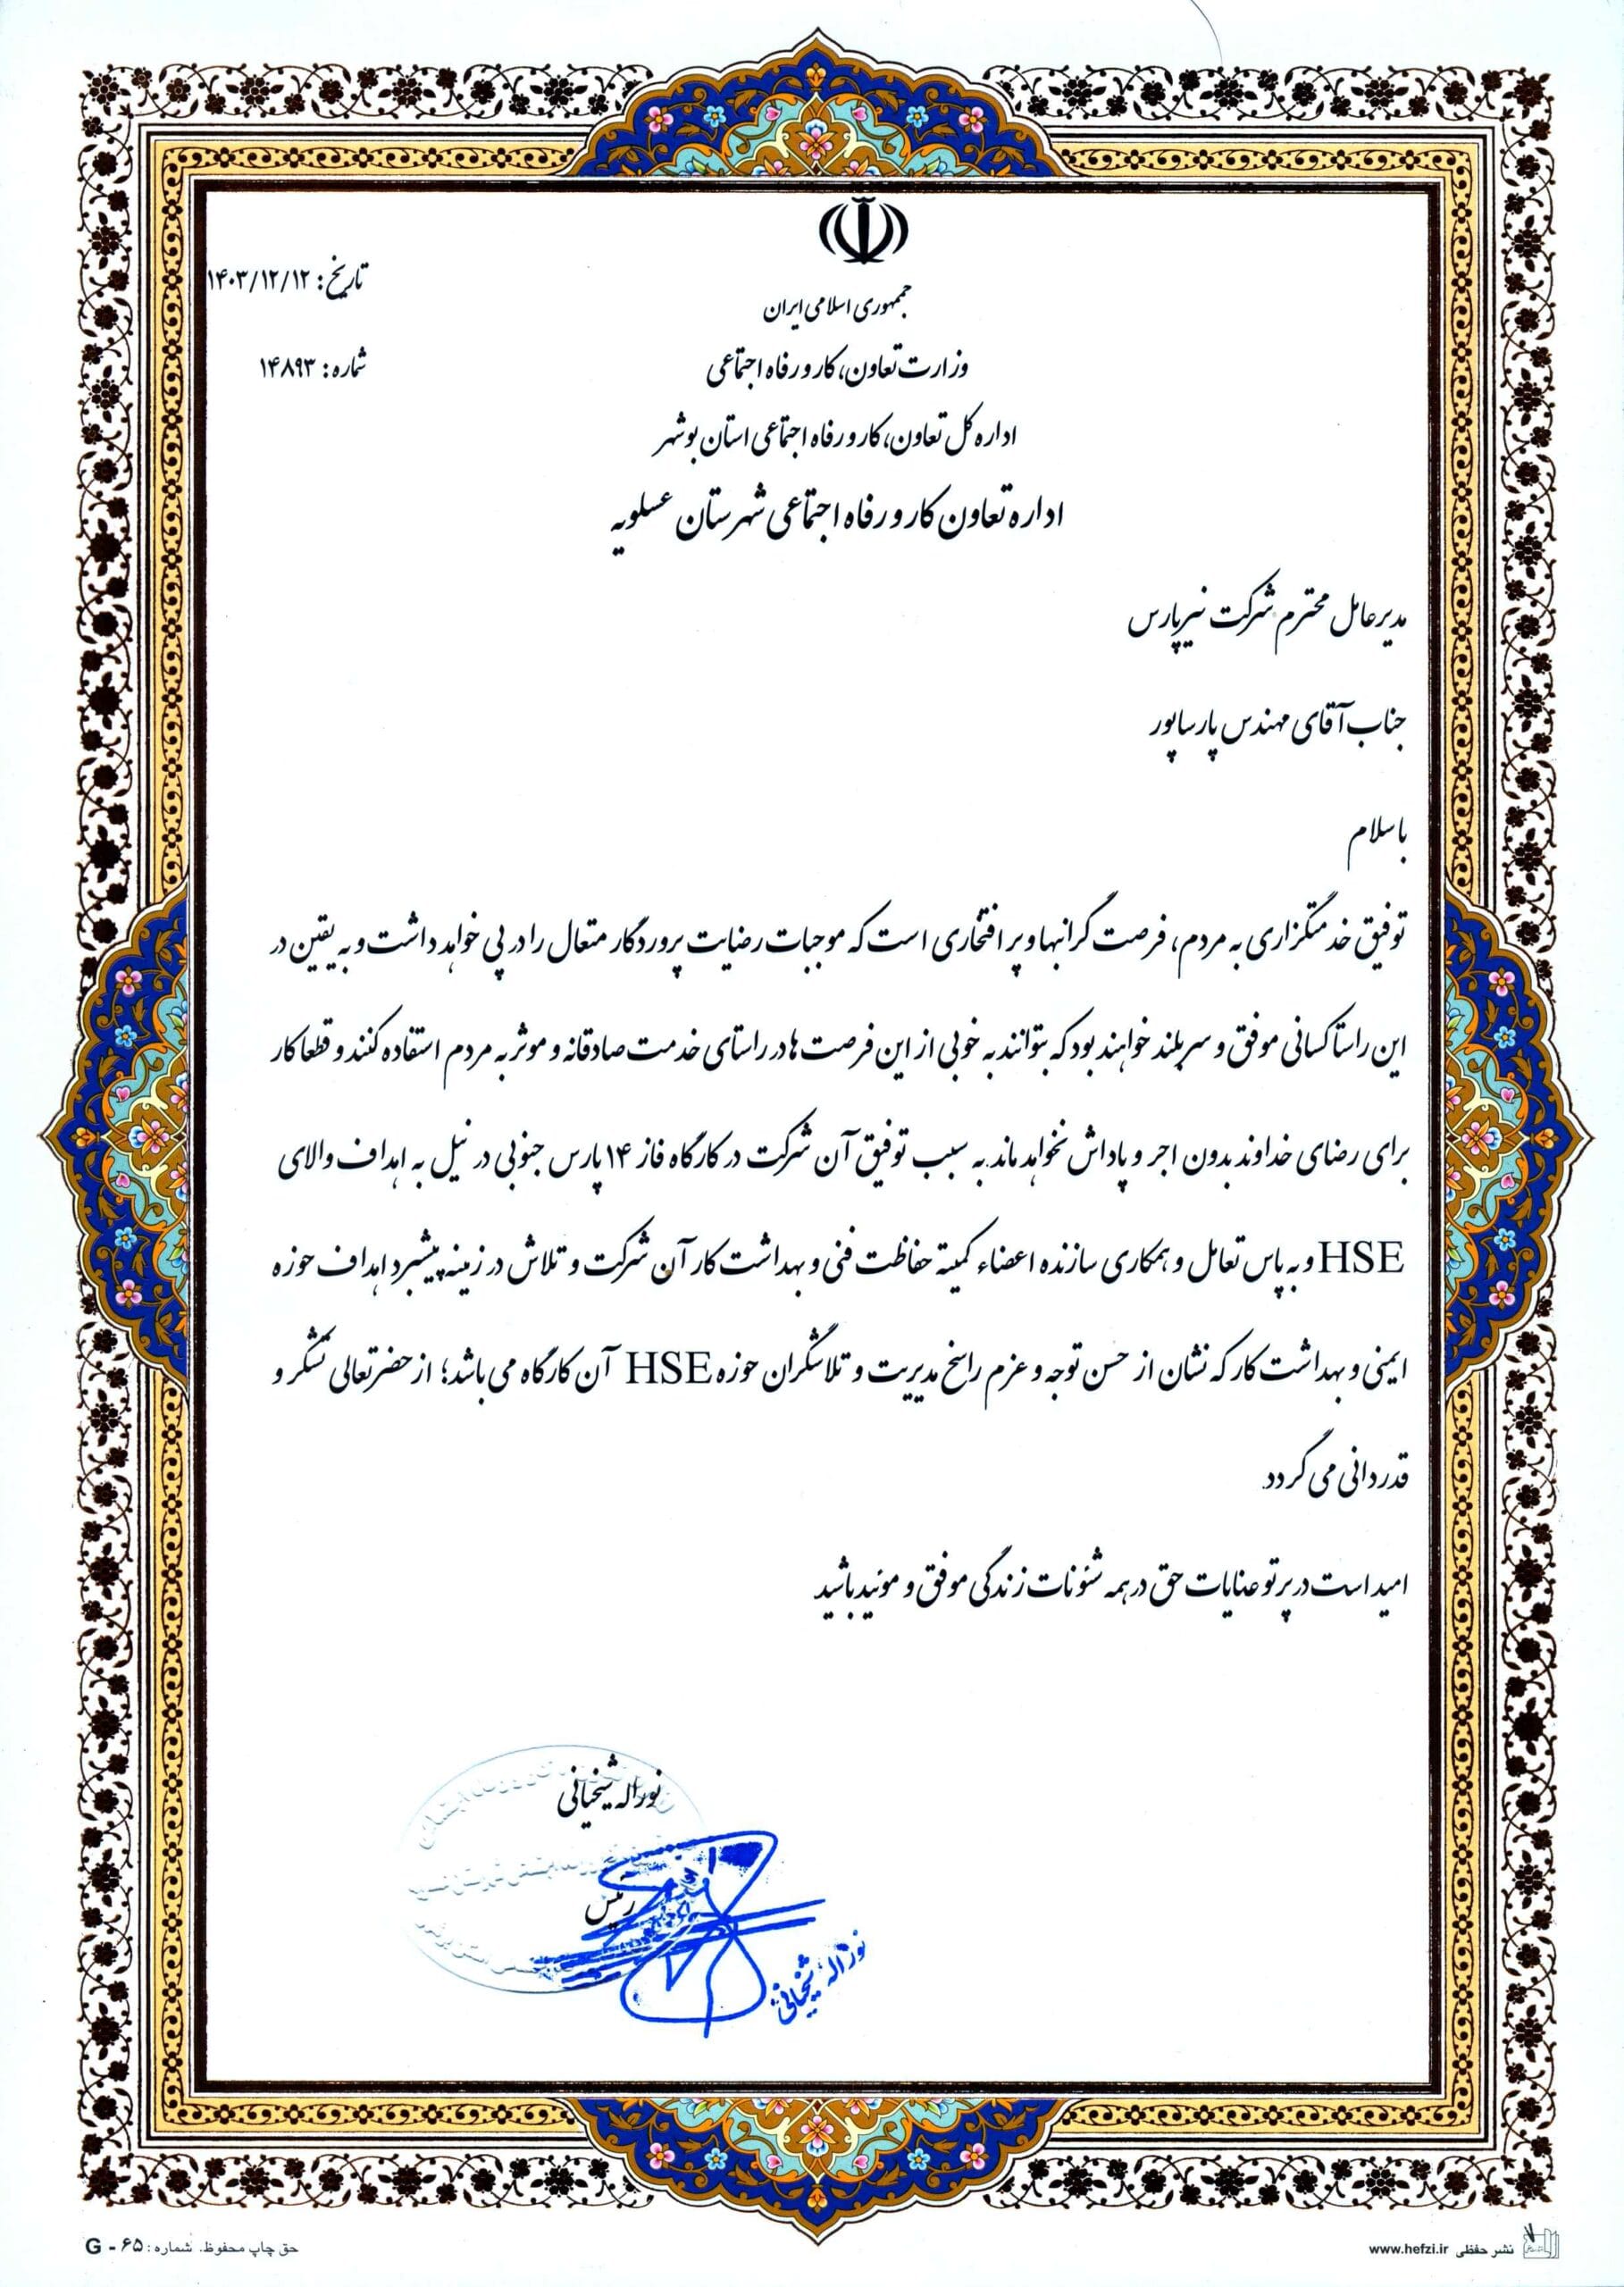 جمهوری اسلامی ایران
وزارت تعاون، کار و رفاه اجتماعی
اداره کل تعاون، کار و رفاه اجتماعی استان بوشهر
اداره تعاون کار و رفاه اجتماعی شهرستان عسلویه
تاریخ: ۱۴۰۳/۱۲/۱۲
شماره: ۱۴۸۹۳
مدیرعامل محترم شرکت نیرپارس
جناب آقای مهندس پارساپور
باسلام
توفیق خدمتگزاری به مردم، فرصت گرانبها و پر افتخاری است که موجبات رضایت پروردگار متعال را در پی خواهد داشت و به یقین در
این راستا کسانی موفق و سربلند خواهند بود که بتوانند به خوبی از این فرصت ها در راستای خدمت صادقانه و موثر به مردم استفاده کنند و قطعا کار
برای رضای خداوند بدون اجر و پاداش نخواهد ماند. به سبب توفیق آن شرکت در کارگاه فاز ۱۴ پارس جنوبی در نیل به اهداف والای
HSE و به پاس تعامل و همکاری سازنده اعضاء کمیته حفاظت فنی و بهداشت کار آن شرکت و تلاش در زمینه پیشبرد اهداف حوزه
ایمنی و بهداشت کار که نشان از حسن توجه و عزم راسخ مدیریت و تلاشگران حوزه HSE آن کارگاه می باشد؛ از حضرتعالی تشکر و
قدردانی می گردد.
امید است در پرتو عنایات حق در همه شئونات زندگی موفق و موئید باشید
نوراله شیخیانی
رئیس
نوراله شیخیانی
نشر حفظی www.hefzi.ir
حق چاپ محفوظ. شماره: G - ۶۵